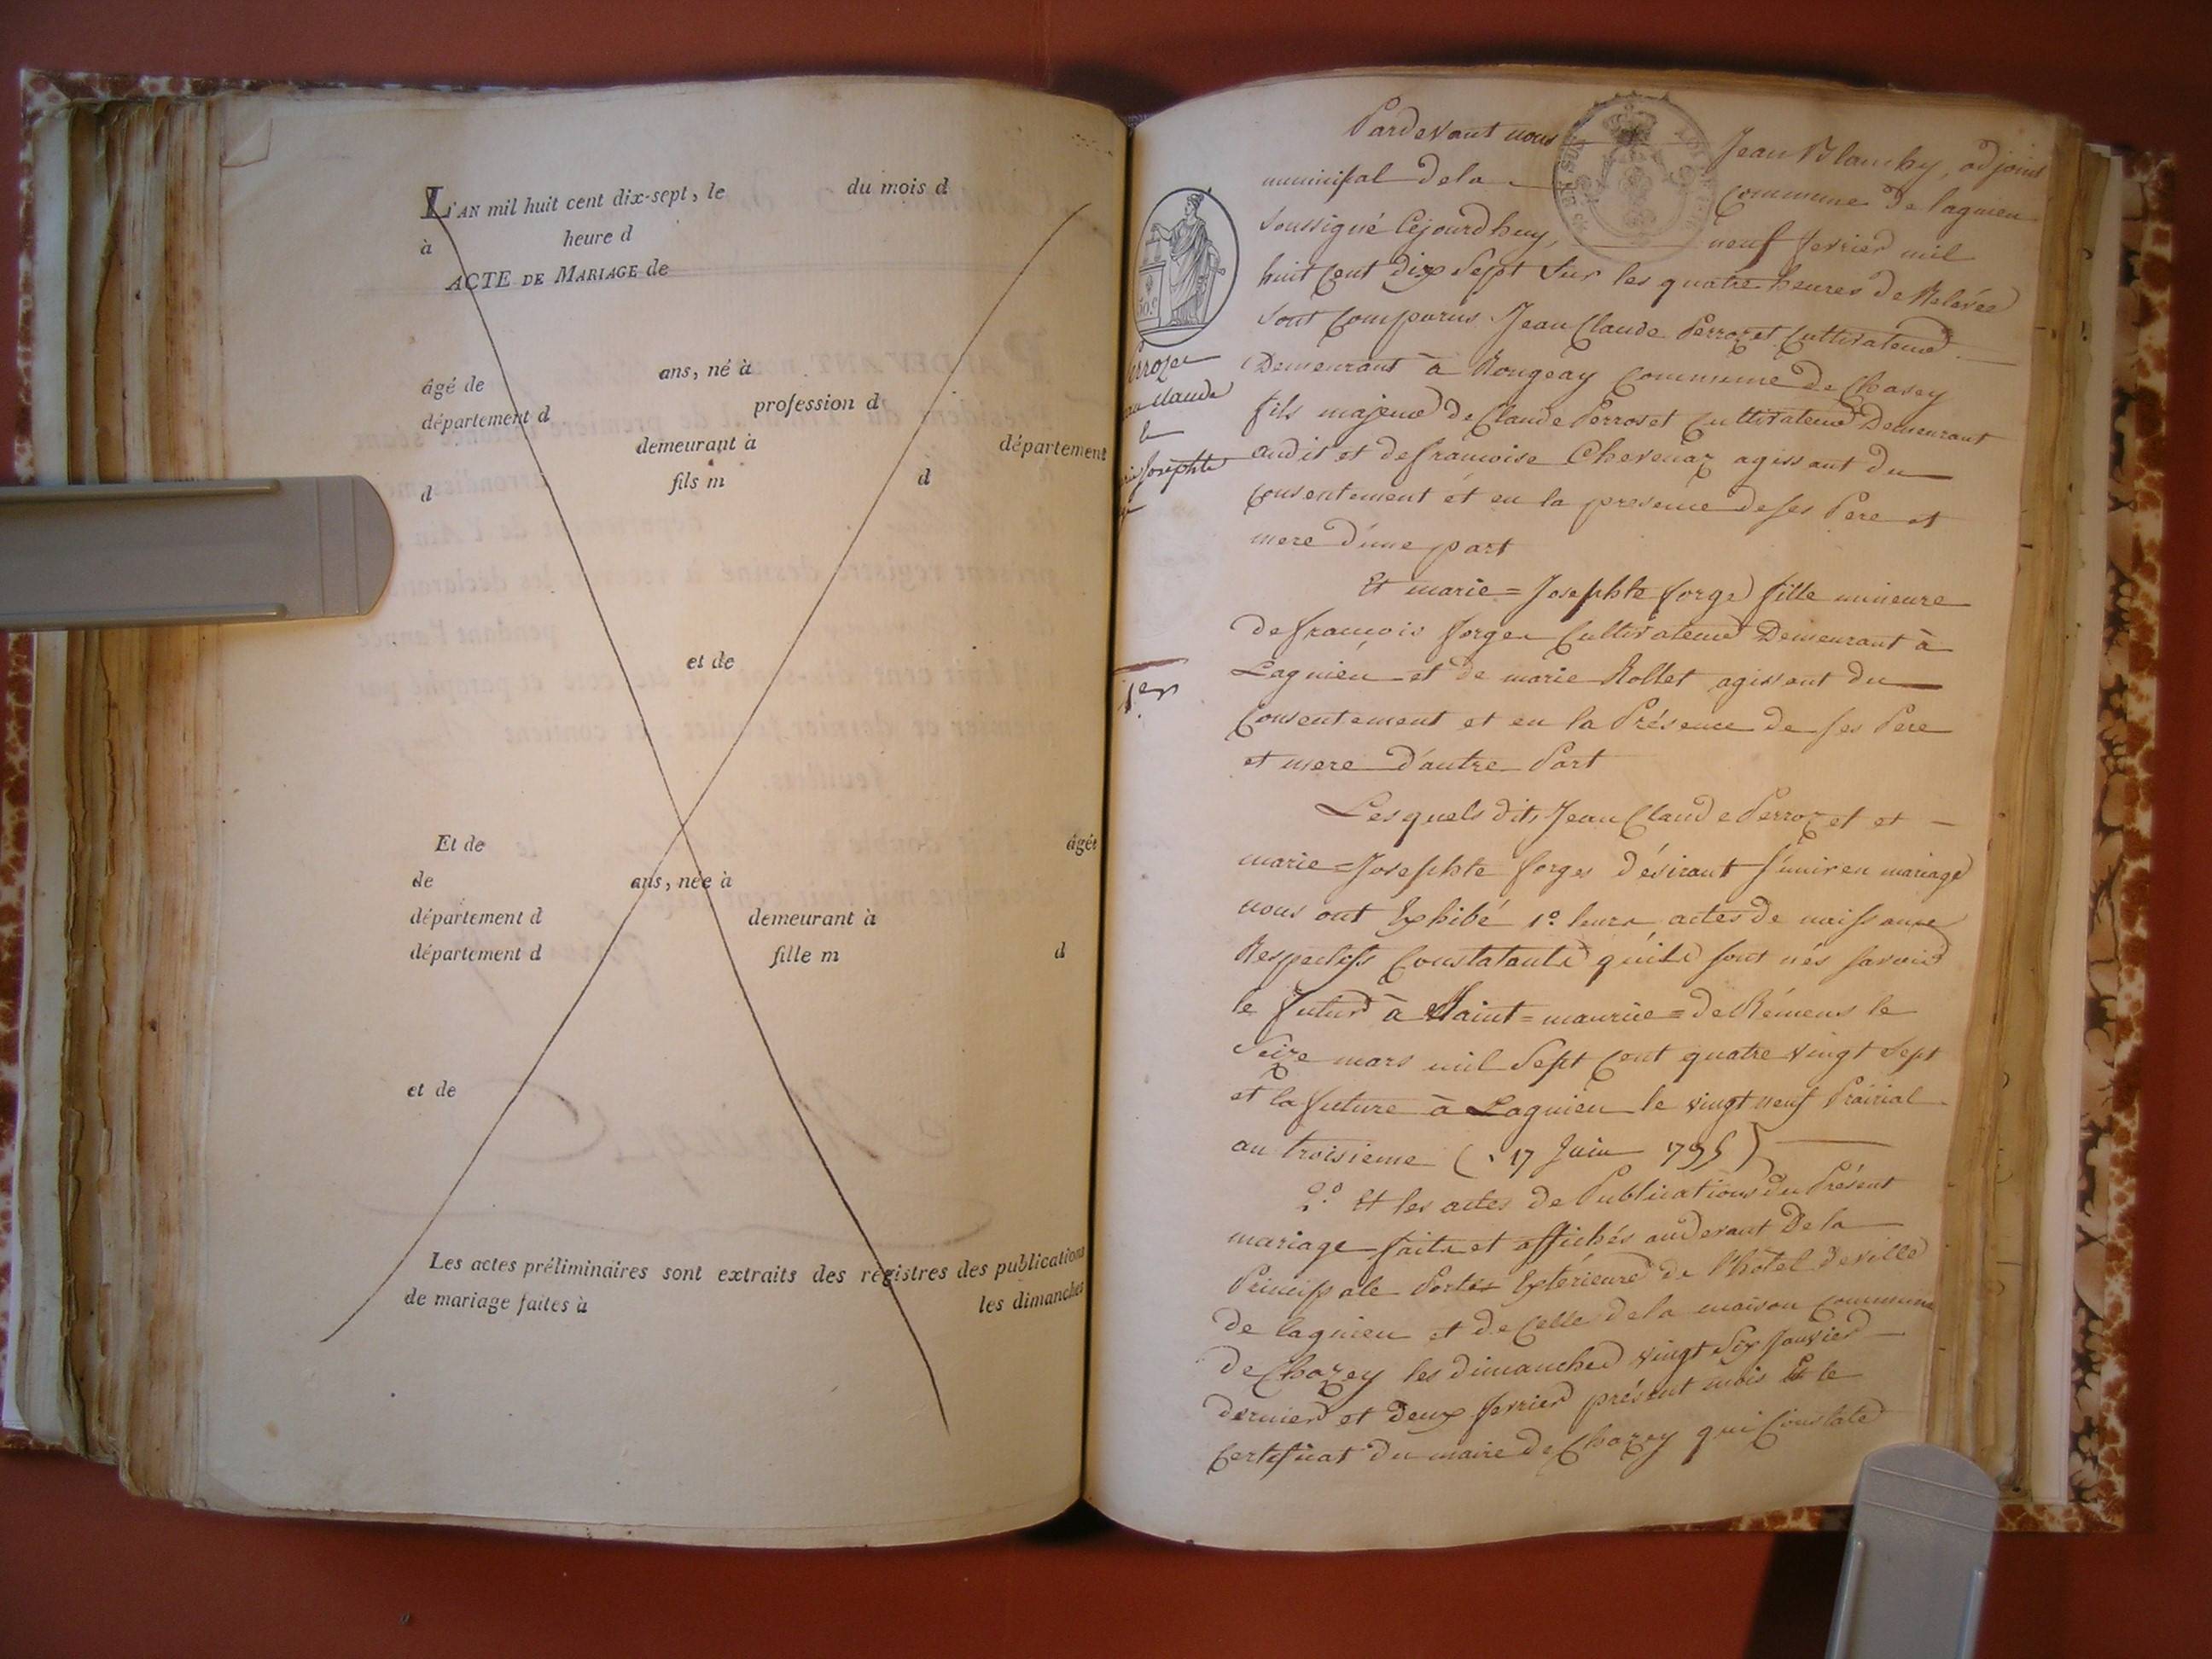 L'AN mil huit cent dix-sept, le du mois d
à heure d
ACTE DE MARIAGE de
âgé de ans, né à
département d profession d
demeurant à département
d fils m d
et de
Et de âgée
de ans, née à
département d demeurant à
département d fille m d
et de
Les actes préliminaires sont extraits des régistres des publications
de mariage faites à les dimanches
Pardevant nous Jean Blanchy, adjoint
municipal de la Commune de lagnieu
Soussigné Cejourdhuy, neuf fevrier mil
huit Cent Dix Sept Sur les quatre heures de Relevée
Sont Comparus Jean Claude Perrozet Cultivateur
Demeurant à Rongeay Commune de Chasey
fils majeur de Claude Perroset Cultivateur Demeurant
audit et de francoise Chevenaz agissant du
Consentement et en la presence de ses Pere et
mere d'une part
Et marie=Josephte forge fille mineure
de francois forge Cultivateur Demeurant à
Lagnieu et de marie Rollet agissant du
Consentement et en la Présence de ses Pere
et mere d'autre Part
Lesquels dits Jean Claude Perrozet et
marie=Josephte forges désirant s'unir en mariage
nous ont Exhibé 1º leurs actes de naissance
Respectifs Constatants qu'ils sont nés savoir
le futur à Saint=maurice=de Rémens le
Seize mars mil Sept Cent quatre vingt Sept
et la future à Lagnieu le vingt neuf Prairial
an troisieme (17 Juin 1795)
2º Et les actes de Publications du Présent
mariage faits et affichés audevant De la
Principale Porte Extérieure de l'hôtel de ville
de lagnieu et de Celle de la maison Commune
de Chazey les dimanches vingt Six Janvier
dernier et deux fevrier présent mois Et le
Certificat du maire de Chazey qui Constate
30.c
Josephte
1er